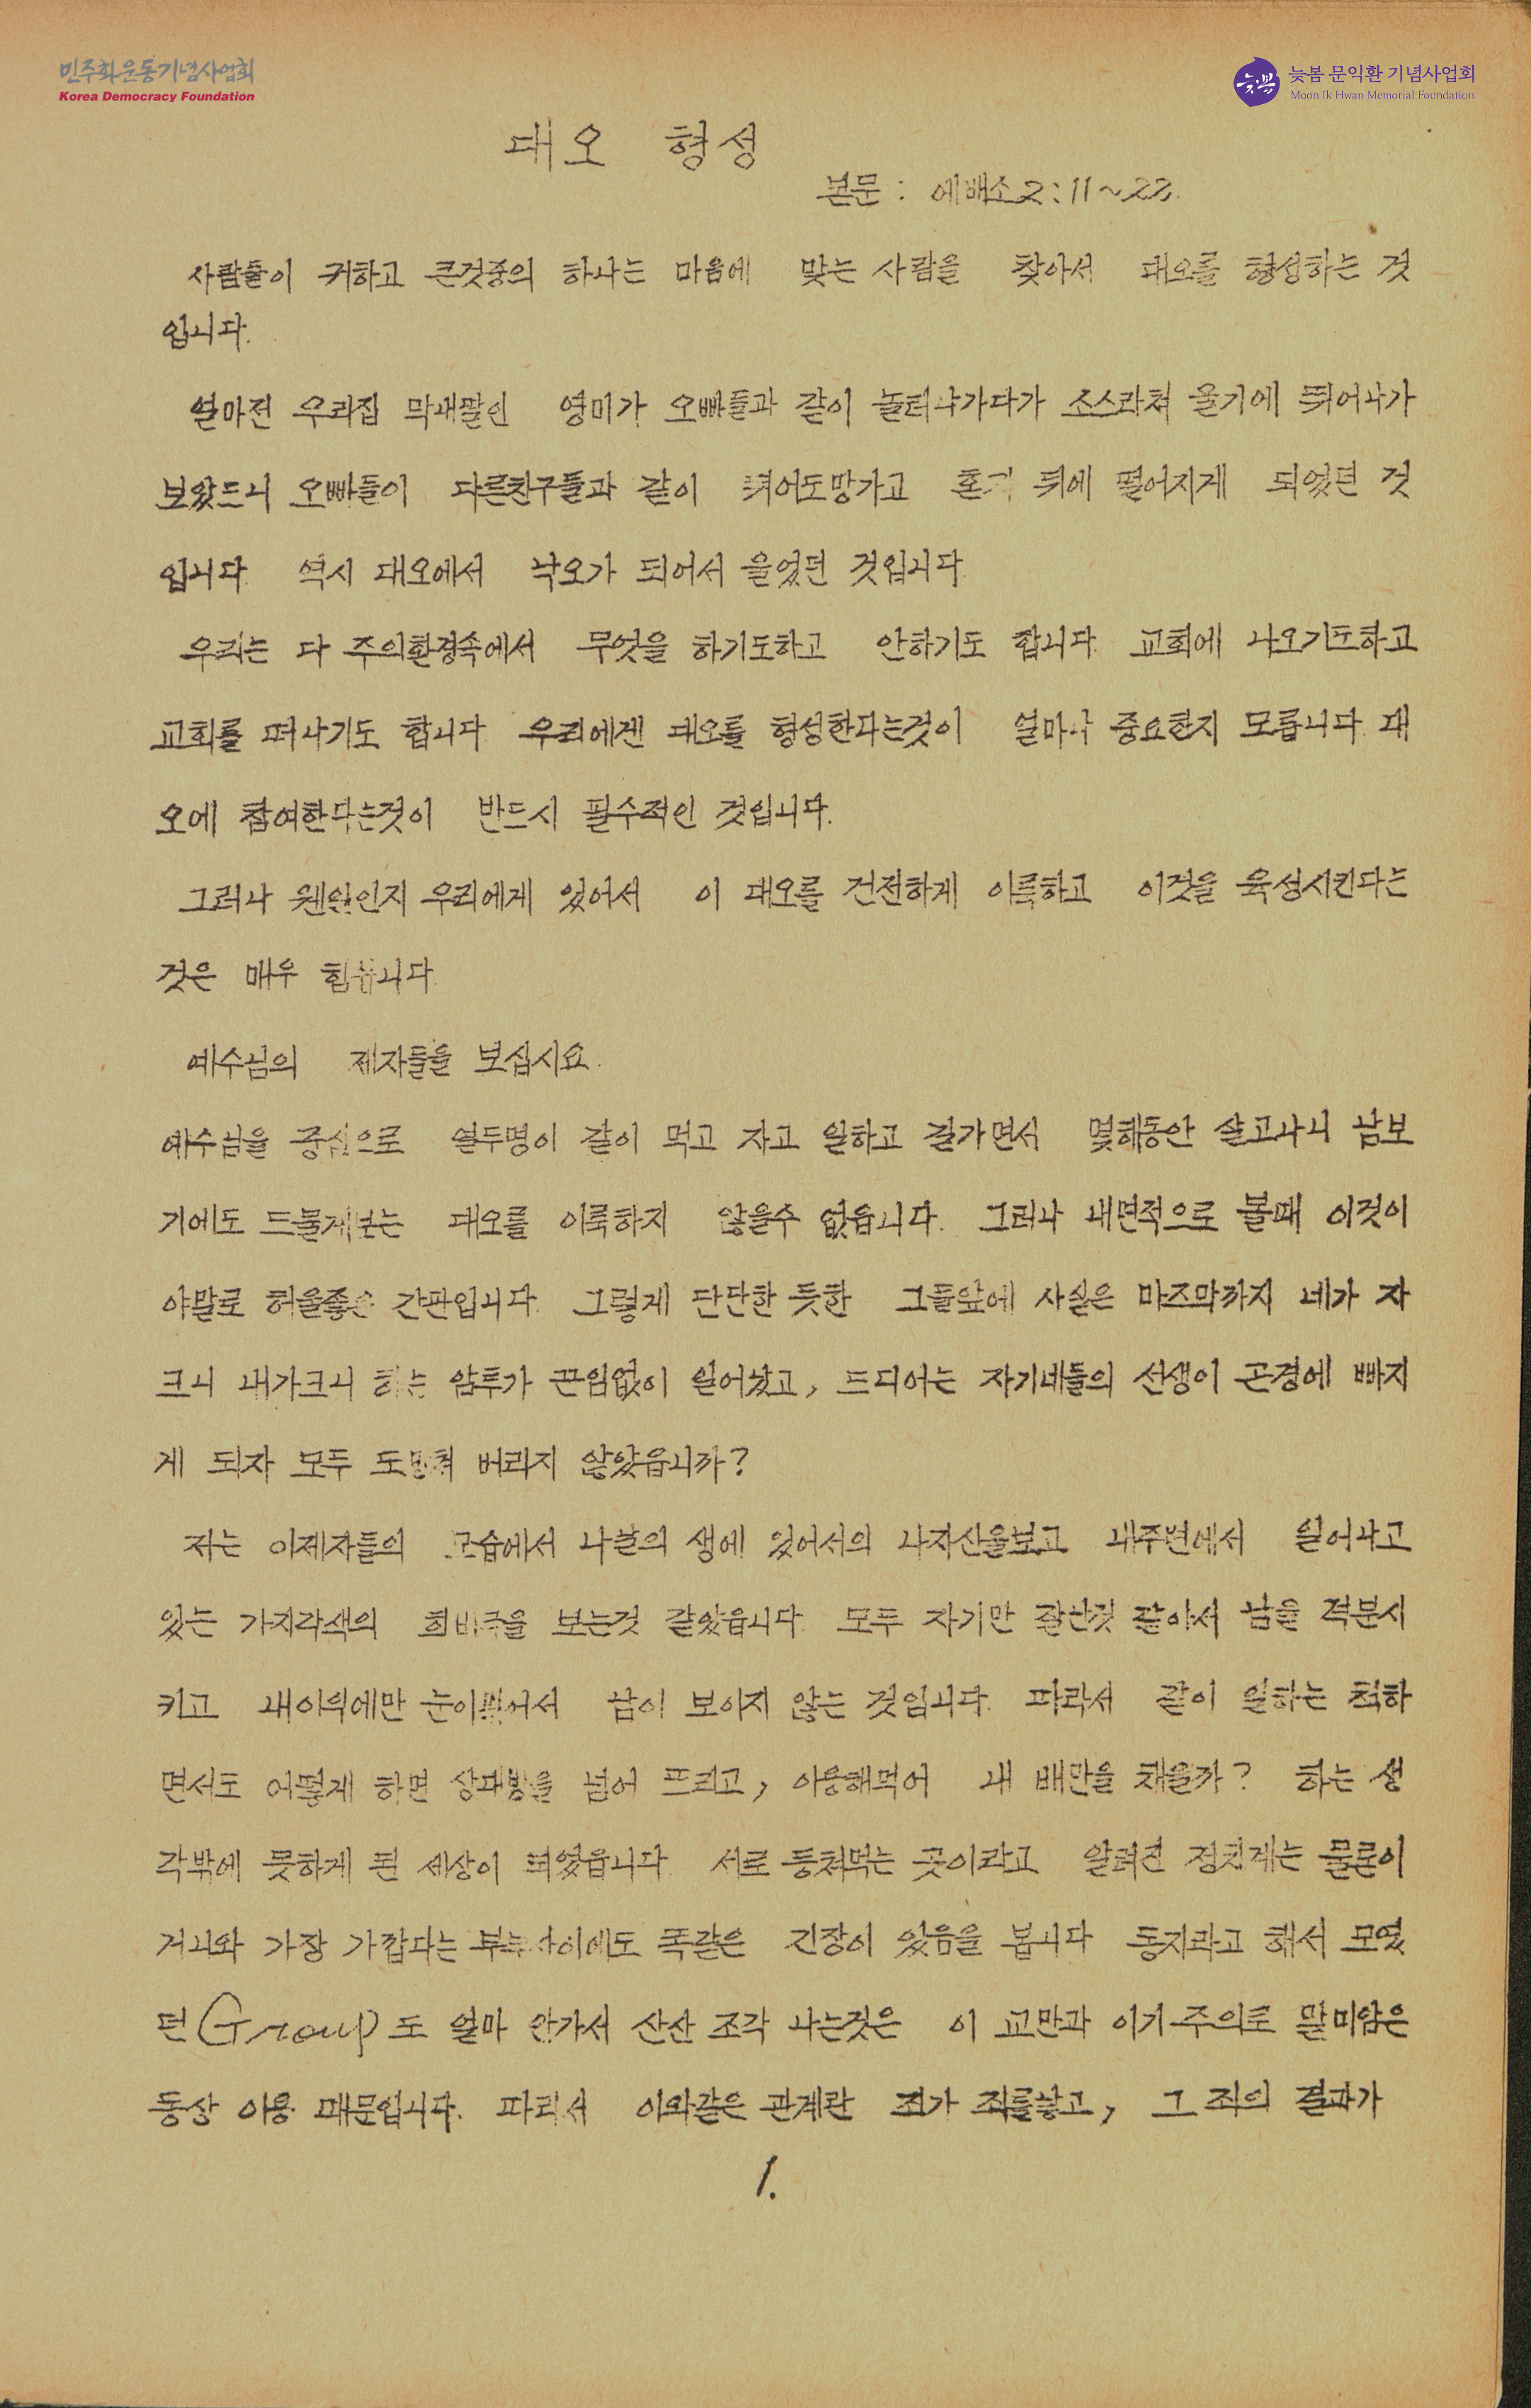 민주화운동기념사업회
Korea Democracy Foundation
늦봄
늦봄 문익환 기념사업회
Moon Ik Hwan Memorial Foundation
대오 형성
본문 : 에배소 2:11~22.
사람들이 귀하고 큰것중의 하나는 마음에 맞는 사람을 찾아서 대오를 형성하는 것
입니다.
얼마전 우리집 막내딸인 영미가 오빠들과 같이 놀러나가다가 소스라쳐 울기에 뛰어나가
보았드니 오빠들이 다른친구들과 같이 뛰어도망가고 혼자 뒤에 떨어지게 되었던 것
입니다. 역시 대오에서 낙오가 되어서 울었던 것입니다.
우리는 다 주의환경속에서 무엇을 하기도하고 안하기도 합니다. 교회에 나오기도하고
교회를 떠나기도 합니다. 우리에겐 대오를 형성한다는것이 얼마나 중요한지 모릅니다. 대
오에 참여한다는것이 반드시 필수적인 것입니다.
그러나 웬일인지 우리에게 있어서 이 대오를 건전하게 이룩하고 이것을 육성시킨다는
것은 매우 힘듭니다.
예수님의 제자들을 보십시요.
예수님을 중심으로 열두명이 같이 먹고 자고 일하고 걸가면서 몇해동안 살고나니 남보
기에도 드물게보는 대오를 이룩하지 않을수 없읍니다. 그러나 내면적으로 볼때 이것이
야말로 허울좋은 간판입니다. 그렇게 단단한 듯한 그들앞에 사실은 마즈막까지 네가 자
크니 내가크니 하는 암투가 끈임없이 일어났고, 드디어는 자기네들의 선생이 곤경에 빠지
게 되자 모두 도망쳐 버리지 않았읍니까?
저는 이제자들의 모습에서 나날의 생에 있어서의 나자신을보고 내주변에서 일어나고
있는 가지각색의 희비극을 보는것 같았읍니다. 모두 자기만 잘난것 같아서 남을 격분시
키고 내이익에만 눈이 남이 보이지 않는 것입니다. 따라서 같이 일하는 척하
면서도 어떻게 하면 상대방을 넘어 뜨리고, 이용해먹어 내 배만을 채울까? 하는 생
각밖에 못하게 된 세상이 되었읍니다. 서로 등쳐먹는 곳이라고 알려진 정치계는 물론이
거니와 가장 가깝다는 부부사이에도 똑같은 긴장이 있음을 봅니다. 동지라고 해서 모였
던 Group도 얼마 안가서 산산 조각 나는것은 이 교만과 이기주의로 말미암은
동상 이몽 때문입니다. 따라서 이와같은 관계란 죄가 죄를낳고, 그 죄의 결과가
1.